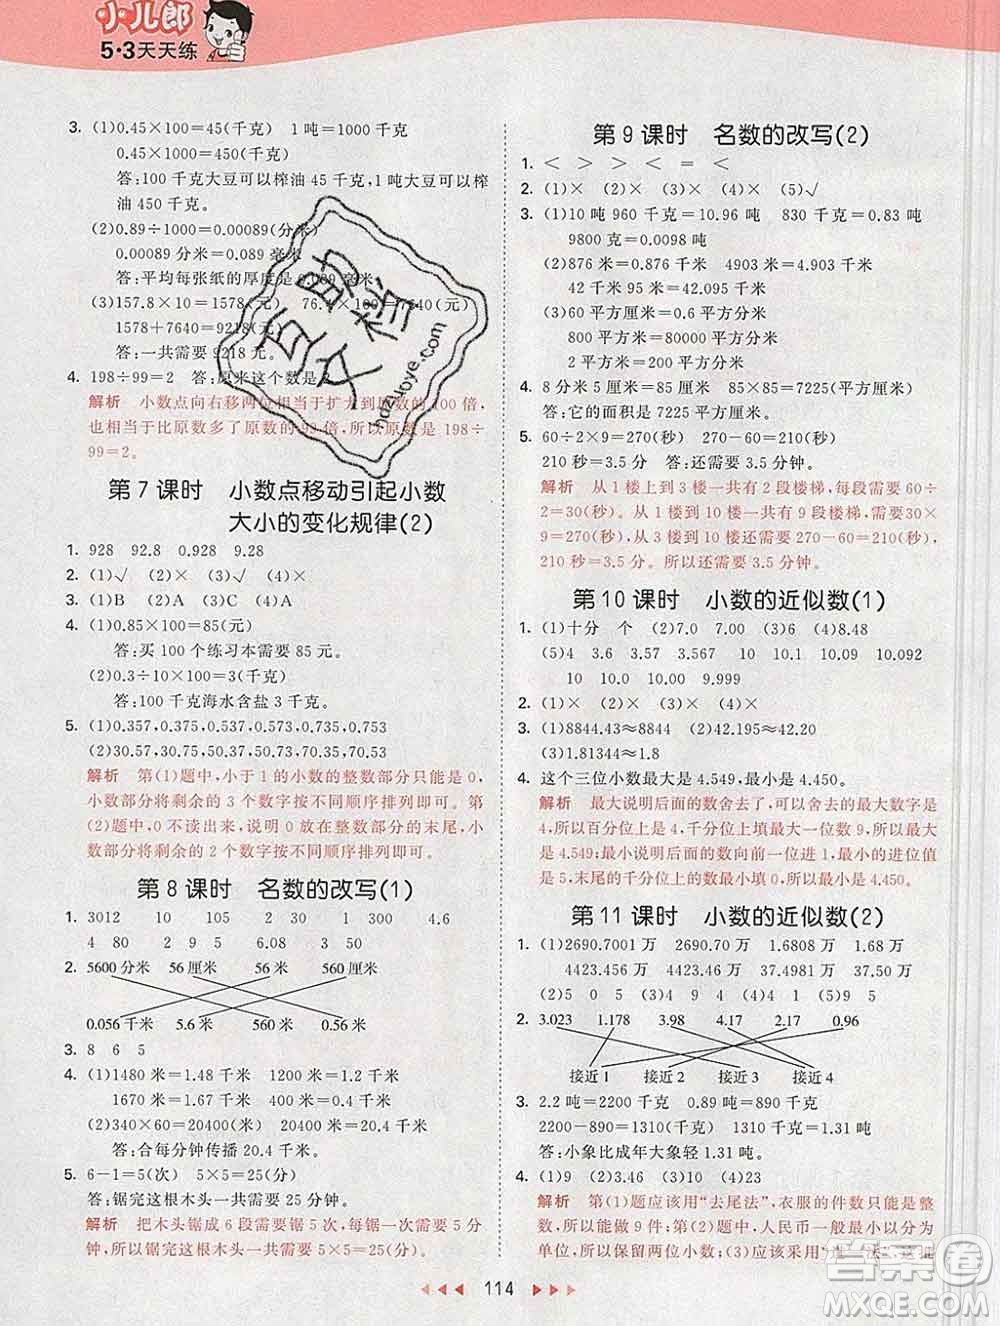 小儿郎
5·3天天练
3. (1)0.45×100=45(千克) 1吨=1000千克
0.45×1000=450(千克)
答:100千克大豆可以榨油45千克,1吨大豆可以榨
油450千克。
(2)0.89÷1000=0.00089(分米)
0.00089分米=0.089毫米
答:平均每张纸的厚度是0.089毫米。
(3)157.8×10=1578(元) 76.4×100=7640(元)
1578+7640=9218(元)
答:一共需要9218元。
4. 198÷99=2 答:原来这个数是2。
解析 小数点向右移两位相当于扩大到原数的100倍,
也相当于比原数多了原数的99倍,所以原数是198÷
99=2。
第7课时 小数点移动引起小数
大小的变化规律(2)
1. 928 92.8 0.928 9.28
2. (1)√ (2)× (3)× (4)×
3. (1)B (2)A (3)C (4)A
4. (1)0.85×100=85(元)
答:买100个练习本需要85元。
(2)0.3÷10×100=3(千克)
答:100千克海水含盐3千克。
5. (1)0.357,0.375,0.537,0.573,0.735,0.753
(2)30.57,30.75,50.37,50.73,70.35,70.53
解析 第(1)题中,小于1的小数的整数部分只能是0,
小数部分将剩余的3个数字按不同顺序排列即可。第
(2)题中,0不读出来,说明0放在整数部分的末尾,小
数部分将剩余的2个数字按不同顺序排列即可。
第8课时 名数的改写(1)
1. 3012 10 105 2 30 1 300 4.6
4 80 2 905 6.08 154
2. 5600分米 56厘米 56米 560厘米
0.056千米 5.6米 560米 0.56米
3. 8 6 5
4. (1)1480米=1.48千米 1200米=1.2千米
1670米=1.67千米 400米=0.4千米
(2)340×60=20400(米) 20400米=20.4千米
答:合每分钟传播20.4千米。
5. 6-1=5(次) 5×5=25(分)
答:锯完这根木头一共需要25分钟。
解析 把木头锯成6段需要锯5次,每锯一次需要5分
钟,所以锯完这根木头一共需要5×5=25(分)。
第9课时 名数的改写(2)
1. < > > < = <
2. (1)× (2)× (3)× (4)× (5)√
3. (1)10吨960千克=10.96吨 830千克=0.83吨
9800克=0.0098吨
(2)876米=0.876千米 4903米=4.903千米
42千米95米=42.095千米
(3)60平方分米=0.6平方米
800平方厘米=0.08平方米
2平方米=200平方分米
4. 8分米5厘米=85厘米 85×85=7225(平方厘米)
答:它的面积是7225平方厘米。
5. 60÷2×9=270(秒) 270-60=210(秒)
210秒=3.5分 答:还需要3.5分钟。
解析 从1楼上到3楼一共有2段楼梯,每段需要60÷
2=30(秒)。从1楼到10楼一共有9段楼梯,需要30×
9=270(秒),所以从3楼到10楼还需要270-60=210
(秒)=3.5分。所以还需要3.5分钟。
第10课时 小数的近似数(1)
1. (1)十分 个 (2)7.0 7.00 (3)6 (4)8.48
(5)4 3.6 3.57 3.567 10 10.1 10.09 10.092
10 10.0 10.00 9.999
2. (1)× (2)× (3)× (4)×
3. (1)8844.43≈8844 (2)42.195≈42.20
(3)1.81344≈1.8
4. 这个三位小数最大是4.549,最小是4.450。
解析 最大说明后面的数舍去了,可以舍去的最大数字是
4,所以百分位上是4,千分位上填最大一位数9,所以最大
是4.549;最小说明后面的数向前一位进一,最小的进位值
是5,末尾的千分位上数字最小填0,所以最小是4.450。
第11课时 小数的近似数(2)
1. (1)2690.7001万 2690.70万 1.6808万 1.68万
4423.456万 4423.46万 37.4981万 37.50万
(2)5 0 5 (3)4 (4)9 5
2. 3.023 1.178 3.98 4.17 2.17 0.96
接近1 接近2 接近3 接近4
3. 2.2吨=2200千克 0.89吨=890千克
2200-890=1310(千克) 1310千克=1.31吨
答:小象比成年大象轻1.31吨。
4. (1)9 (2)3.46 (3)10 (4)23.8
解析 第(1)题应该用“去尾法”,衣服的件数只能是整
数,所以能做9件;第(2)题中,人民币一般没有以厘作单
位的,所以保留两位小数;(3)应该采用“进一法”,
114
互助文档
hdzuoye.com
答案圈
MXQE.COM